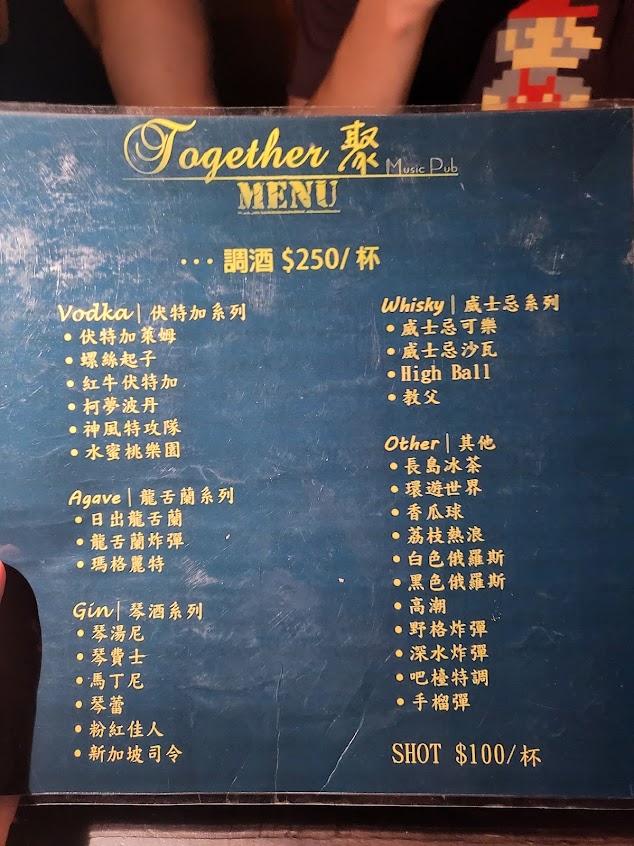 Together 聚 Music Pub
MENU
... 調酒 $250/杯
Vodka | 伏特加系列
• 伏特加萊姆
• 螺絲起子
• 紅牛伏特加
• 柯夢波丹
• 神風特攻隊
• 水蜜桃樂園
Agave | 龍舌蘭系列
• 日出龍舌蘭
• 龍舌蘭炸彈
• 瑪格麗特
Gin | 琴酒系列
• 琴湯尼
• 琴費士
• 馬丁尼
• 琴蕾
• 粉紅佳人
• 新加坡司令
Whisky | 威士忌系列
• 威士忌可樂
• 威士忌沙瓦
• High Ball
• 教父
Other | 其他
• 長島冰茶
• 環遊世界
• 香瓜球
• 荔枝熱浪
• 白色俄羅斯
• 黑色俄羅斯
• 高潮
• 野格炸彈
• 深水炸彈
• 吧檯特調
• 手榴彈
SHOT $100/杯